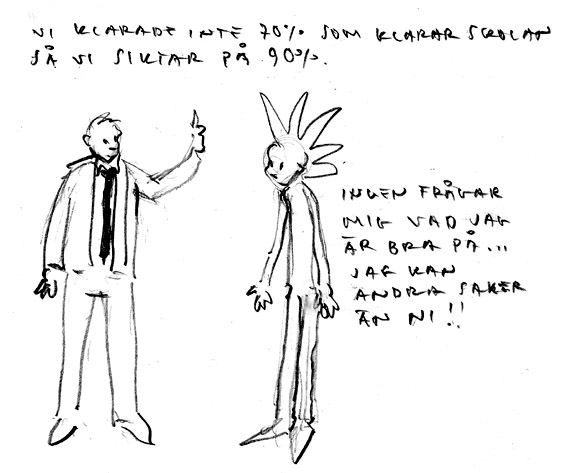 VI KLARADE INTE 70% SOM KLARAR SKOLAN
SÅ VI SIKTAR PÅ 90%.
INGEN FRÅGAR
MIG VAD JAG
ÄR BRA PÅ...
JAG KAN
ANDRA SAKER
ÄN NI!!